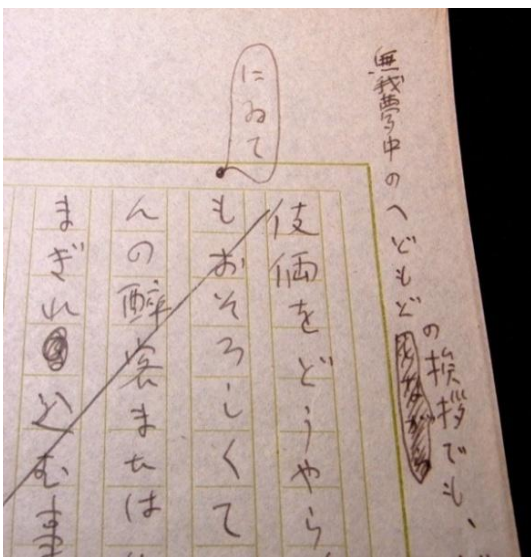 無我夢中のへどもどの挨拶でも、
にゐて
伎倆をどうやら
もおそろしくて
んの酔客または
まぎれ込むま